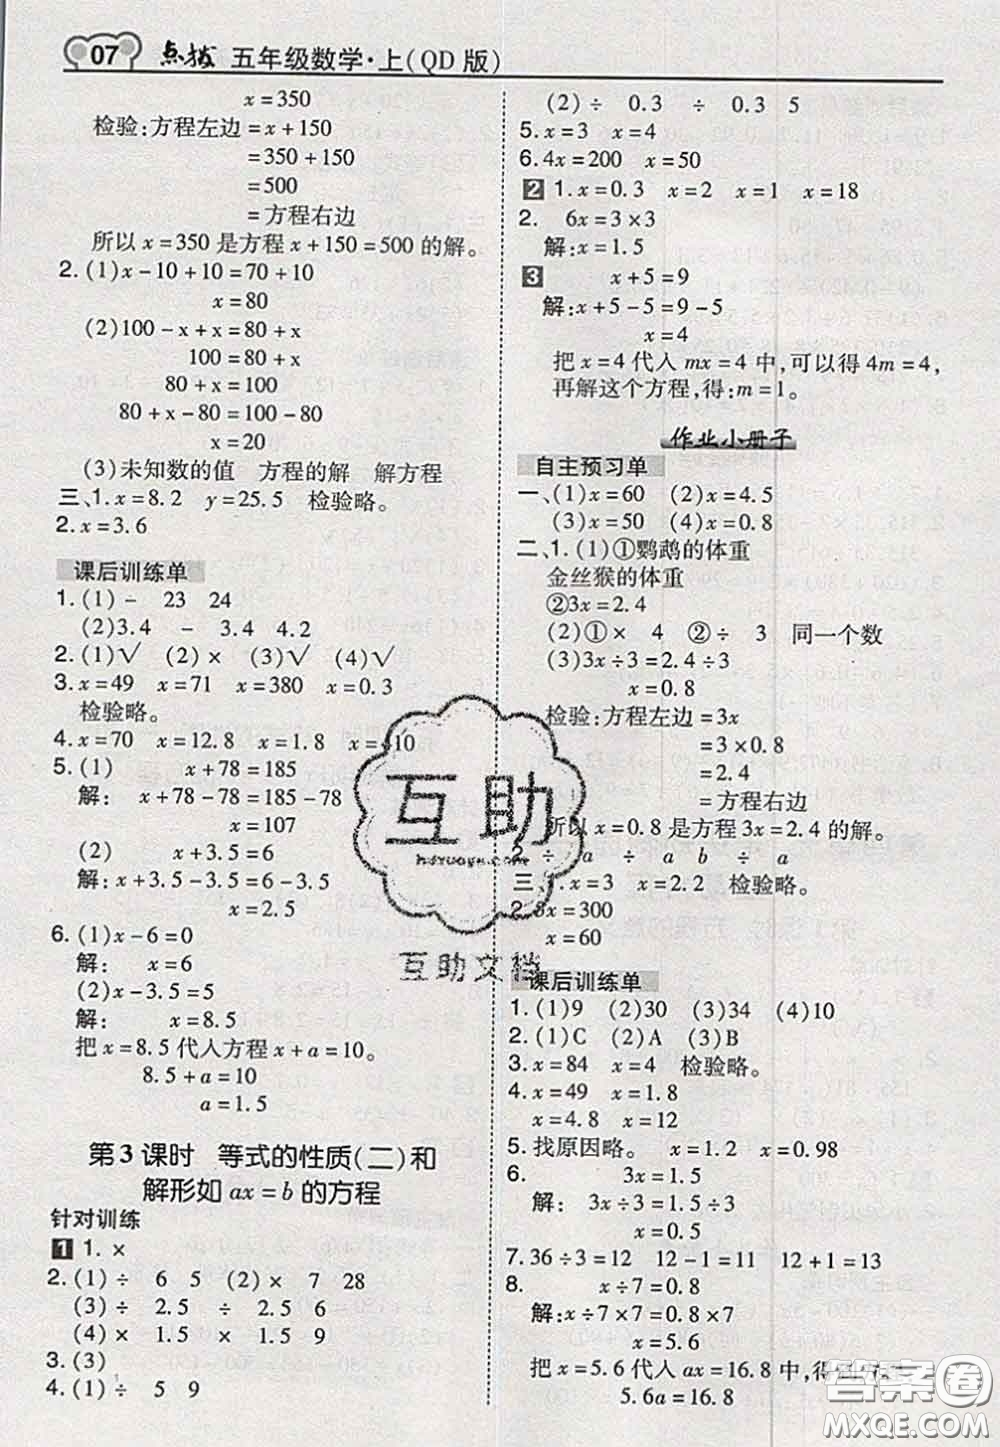 07 点拨 五年级数学·上(QD版)
x=350
检验:方程左边=x+150
=350+150
=500
=方程右边
所以x=350是方程x+150=500的解。
2.(1)x-10+10=70+10
x=80
(2)100-x+x=80+x
100=80+x
80+x=100
80+x-80=100-80
x=20
(3)未知数的值 方程的解 解方程
三、1.x=8.2 y=25.5 检验略。
2.x=3.6
课后训练单
1.(1)- 23 24
(2)3.4 - 3.4 4.2
2.(1)√ (2)× (3)√ (4)√
3.x=49 x=71 x=380 x=0.3
检验略。
4.x=70 x=12.8 x=1.8 x=410
5.(1) x+78=185
解: x+78-78=185-78
x=107
(2) x+3.5=6
解:x+3.5-3.5=6-3.5
x=2.5
6.(1)x-6=0
解: x=6
(2)x-3.5=5
解: x=8.5
把x=8.5代入方程x+a=10。
8.5+a=10
a=1.5
第3课时 等式的性质(二)和
解形如ax=b的方程
针对训练
1 1.×
2.(1)÷ 6 5 (2)× 7 28
(3)÷ 2.5 ÷ 2.5 6
(4)× 1.5 × 1.5 9
3.(3)
4.(1)÷ 5 9
(2)÷ 0.3 ÷ 0.3 5
5.x=3 x=4
6.4x=200 x=50
2 1.x=0.3 x=2 x=1 x=18
2. 6x=3×3
解:x=1.5
3 x+5=9
解:x+5-5=9-5
x=4
把x=4代入mx=4中,可以得4m=4,
再解这个方程,得:m=1。
作业小册子
自主预习单
一、(1)x=60 (2)x=4.5
(3)x=50 (4)x=0.8
二、1.(1)①鹦鹉的体重
金丝猴的体重
②3x=2.4
(2)①× 4 ②÷ 3 同一个数
(3)3x÷3=2.4÷3
x=0.8
检验:方程左边=3x
=3×0.8
=2.4
=方程右边
所以x=0.8是方程3x=2.4的解。
2. ÷ a ÷ a b ÷ a
三、1.x=3 x=2.2 检验略。
x=300
x=60
课后训练单
1.(1)9 (2)30 (3)34 (4)10
2.(1)C (2)A (3)B
3.x=84 x=4 检验略。
4.x=49 x=1.8
x=4.8 x=12
5.找原因略。 x=1.2 x=0.98
6. 3x=1.5
解: 3x÷3=1.5÷3
x=0.5
7.36÷3=12 12-1=11 12+1=13
8. x÷7=0.8
解:x÷7×7=0.8×7
x=5.6
把x=5.6代入ax=16.8中,得到方程
5.6a=16.8
互助
互助文档
答案圈
MXQE.COM